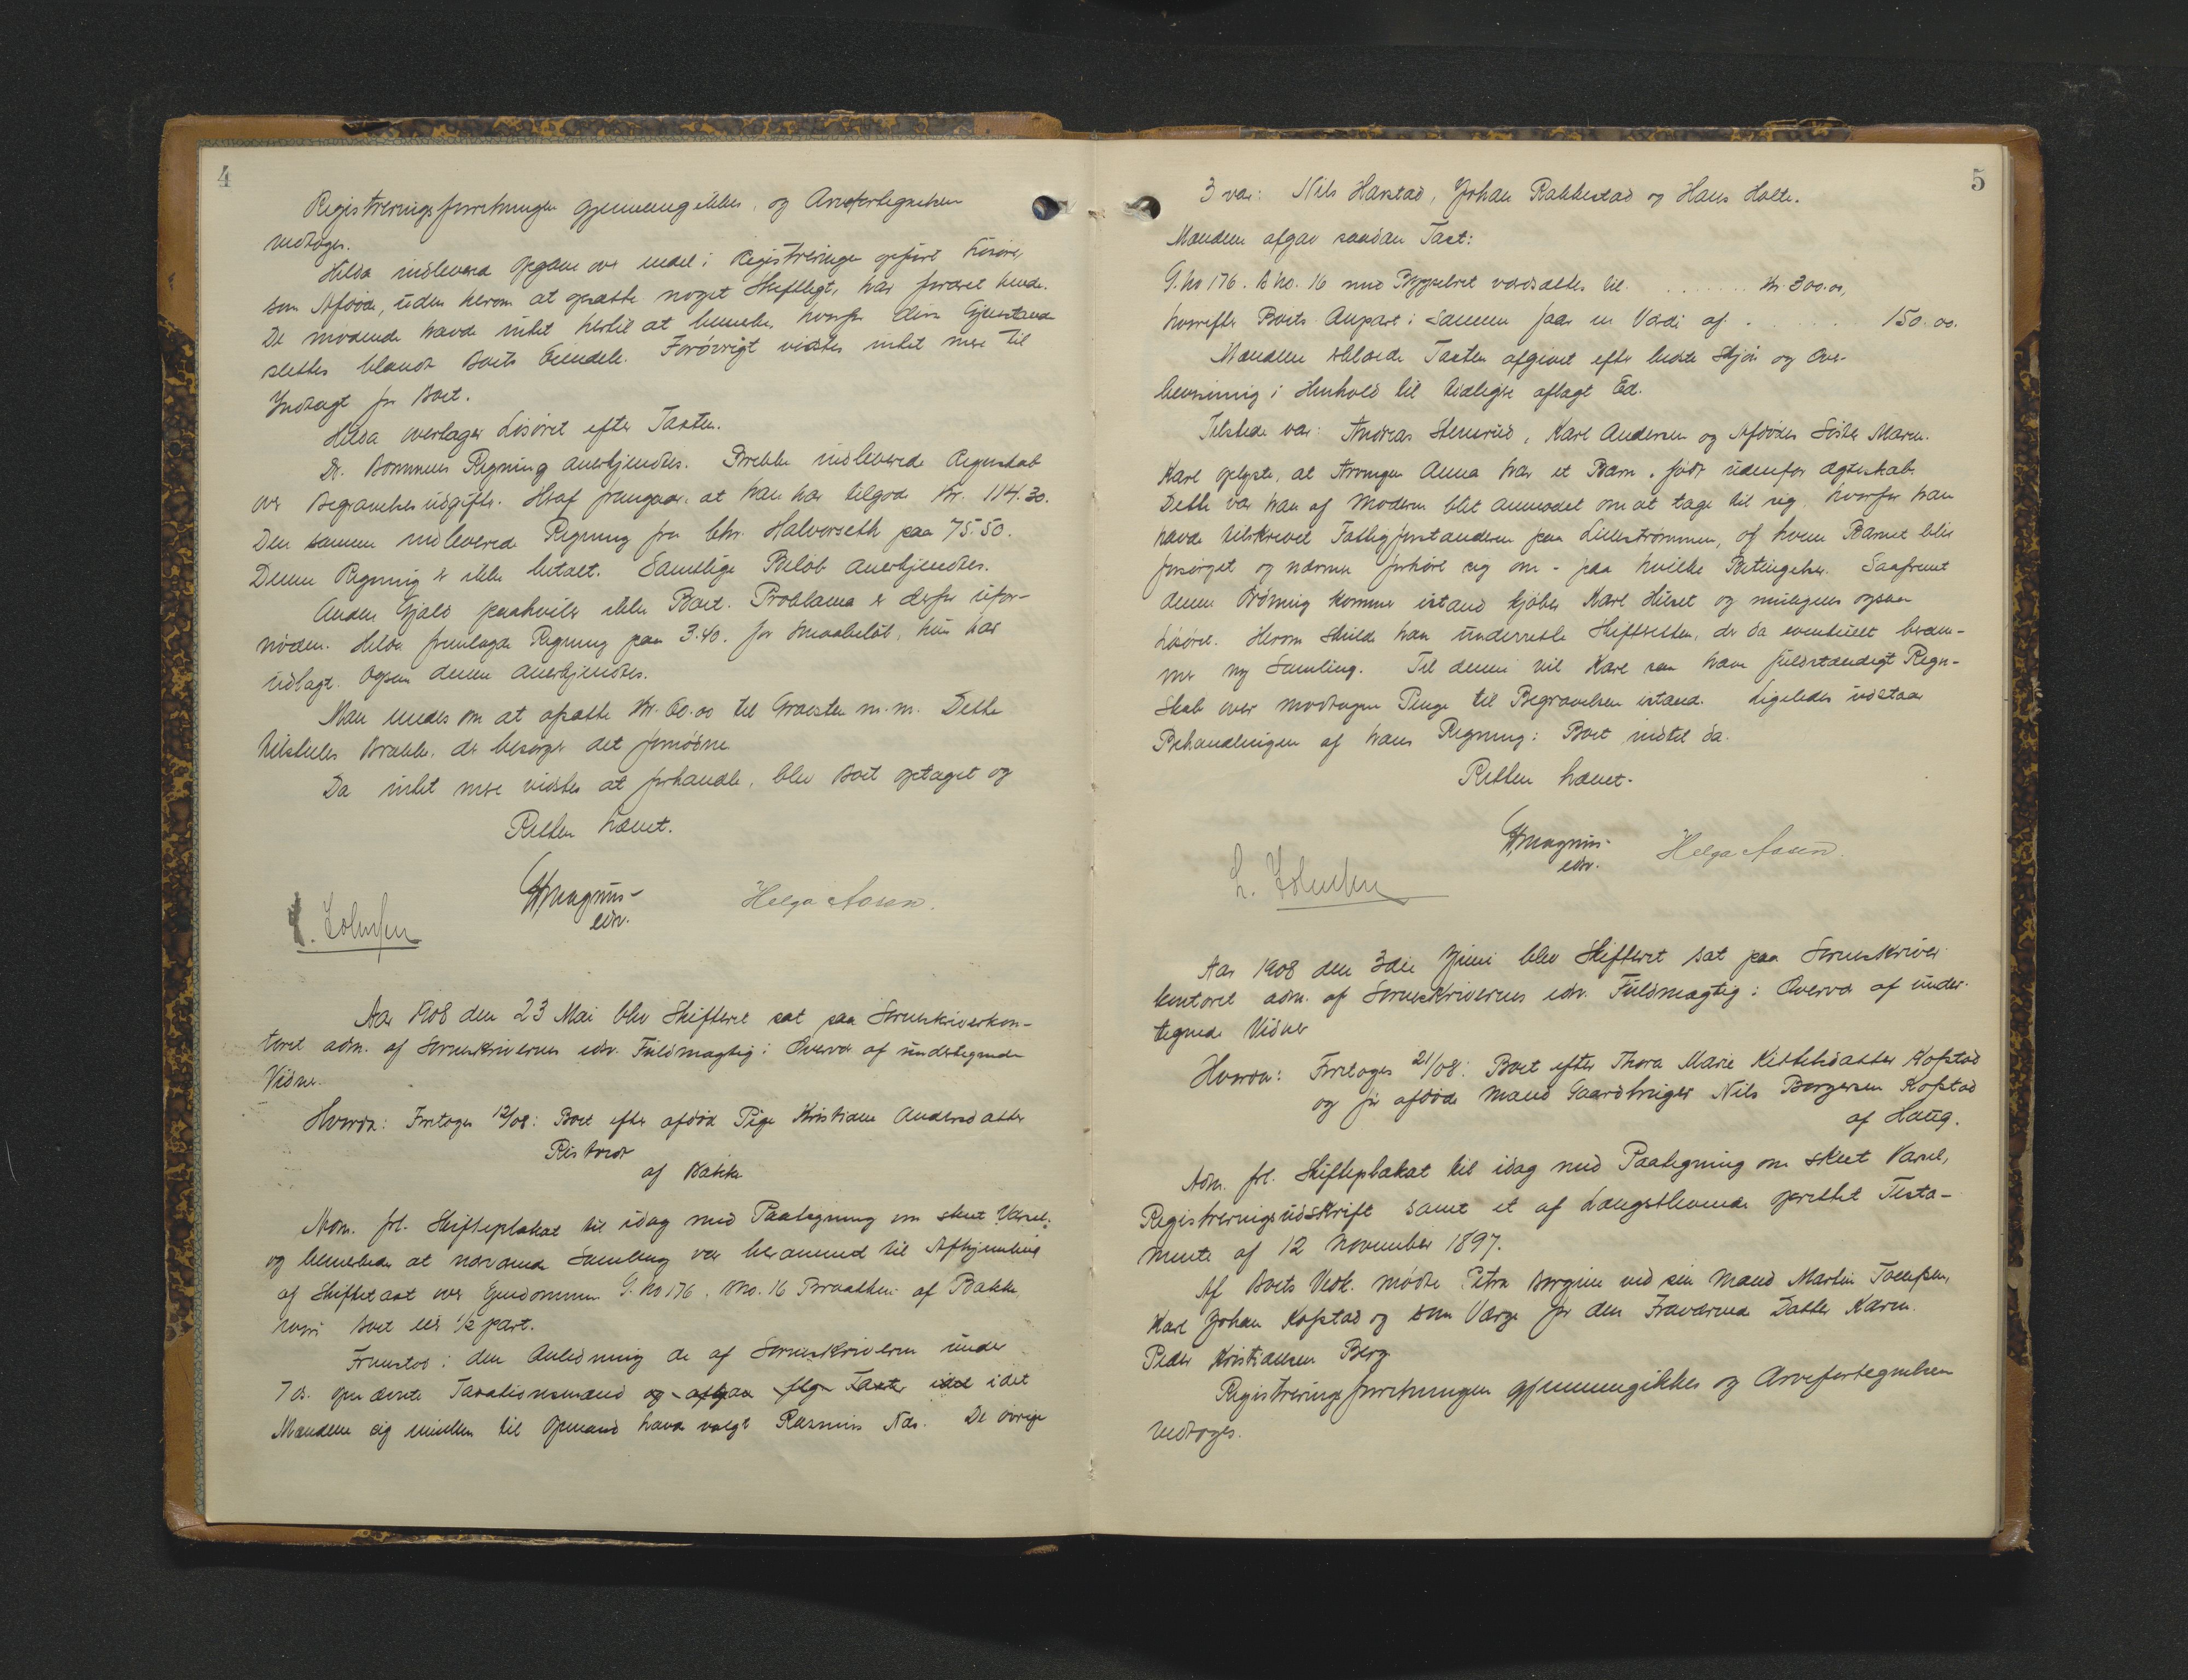 4
Registreringsforretningen gjennemgikkes og Arvefortegnelsen
vedtoges.
Hilda indleverede Opgave over endel i Registreringen opført Løsøre,
som Afdøde, uden herom at opsætte noget Skriftligt, har foræret hende.
De mødende havde intet hertil at bemerke, hvorfor disse Gjenstande
slettes blandt Boets Eiendele. Forøvrigt vidstes intet mere til
Indtægt for Boet.
Hilda overtager Løsøret efter Taxten.
Dr. Bommens Regning anerkjendtes. Brekke indleverede Regnskab
over Begravelsesudgifter. Heraf fremgaar, at han har tilgode Kr. 114.30.
Den samme indleverede Regning fra lhr. Halvorseth paa 75.50.
Denne Regning er ikke betalt. Samtlige Beløb anerkjendtes.
Anden Gjæld paahviler ikke Boet. Proklama er derfor ufor-
nøden. Hilda fremlagde Regning paa 3.40. for Smaabeløb, hun har
udlagt. Ogsaa denne anerkjendtes.
Man enedes om at afsætte Kr. 60.00 til Gravsten m.m. Dette
tilstilles Brekke, der besørger det fornødne
Da intet mere vidstes at forhandle, blev Boet optaget og
Retten hævet.
Magnus
edsv.
Helga Aasen.
Aar 1908 den 23 Mai blev Skifteret sat paa Sorenskriverkon-
toret adm. af Sorenskriverens edsv. Fuldmægtig i Overvær af undertegnede
Vidner.
Hvorda: Foretoges 12/08: Boet efter afdød Pige Kristiane Andersdatter
af Bakke
Adm. frl. Skifteplakat til idag med Paategning om skeet Varsel,
og bemerkede at nærværende Samling var berammet til Afhjemling
af Skiftetaxt over Eiendommen G. No 176, B.No. 16 Braathen af Bakke,
hvori Boet eier ½ part.
Fremstod i den Anledning de af Sorenskriveren under
7 ds. opnævnte Taxationsmænd og afgav flg. Taxter idet idet
Mændene sig imellem til Opmand havde valgt Rasmus Nds. De øvrige
5
3 var: Nils Harstad, Johan Rakkestad og Hans Holte.
Mændene afgav saadan Taxt:
G. No 176. B No. 16 med Byggeret værdsættes til . . . . . . . Kr. 300.00,
hvorefter Boets Anpart i samme faar en Værdi af . . . . . 150.00.
Mændene erklærede Taxten afgivet efter bedste Skjøn og Over-
bevisning i Henhold til tidligere aflagt Ed.
Tilstede var: Andreas Stenerud, Karl Andersen og Afdødes Søster Maren.
Karl oplyste, at Arvingen Anna har et Barn, født udenfor Ægteskab.
Dette var han af Moderen blit anmodet om at tage til sig, hvorfor han
havde tilskrevet Fattigforstanderen paa Lillestrømmen, af hvem Barnet blir
forsørget og nærmere forhøre sig om - paa hvilke Betingelser. Saafremt
denne Ordning kommer istand kjøber Karl Huset og muligens ogsaa
Løsøret. Herom skulde han underrette Skifteretten, der da eventuelt beram-
mer ny Samling. Til denne vil Karl saa have fuldstændigt Regn-
skab over modtagne Penge til Begravelsen istand. Ligeledes udstaar
Behandlingen af hans Regning i Boet indtil da.
Retten hævet.
Magnus
edsv.
Helga Aasen.
Aar 1908 den 3die Juni blev Skifteret sat paa Sorenskriver
kontoret adm. af Sorenskriverens edsv. Fuldmægtig i Overvær af under-
tegnede Vidner
Hvorda: Foretoges 21/08: Boet efter Thora Marie Kittelsdatter Kopstad
og før afdøde Mand Gaardbruger Nils Borgersen Kopstad
af Haug.
Adm. frl. Skifteplakat til idag med Paategning om skeet Varsel,
Registreringsudskrift samt et af Længstlevende oprettet Testa-
mente af 12 November 1897.
Af Boets Vedk. mødte Petra Borgine ved sin Mand Martin Tollefsen,
Karl Johan Kopstad og som Værge for den fraværende Datter Karen
Peder Kristiansen Berg
Registreringsforretningen gjennemgikkes og Arvefortegnelsen
vedtoges.